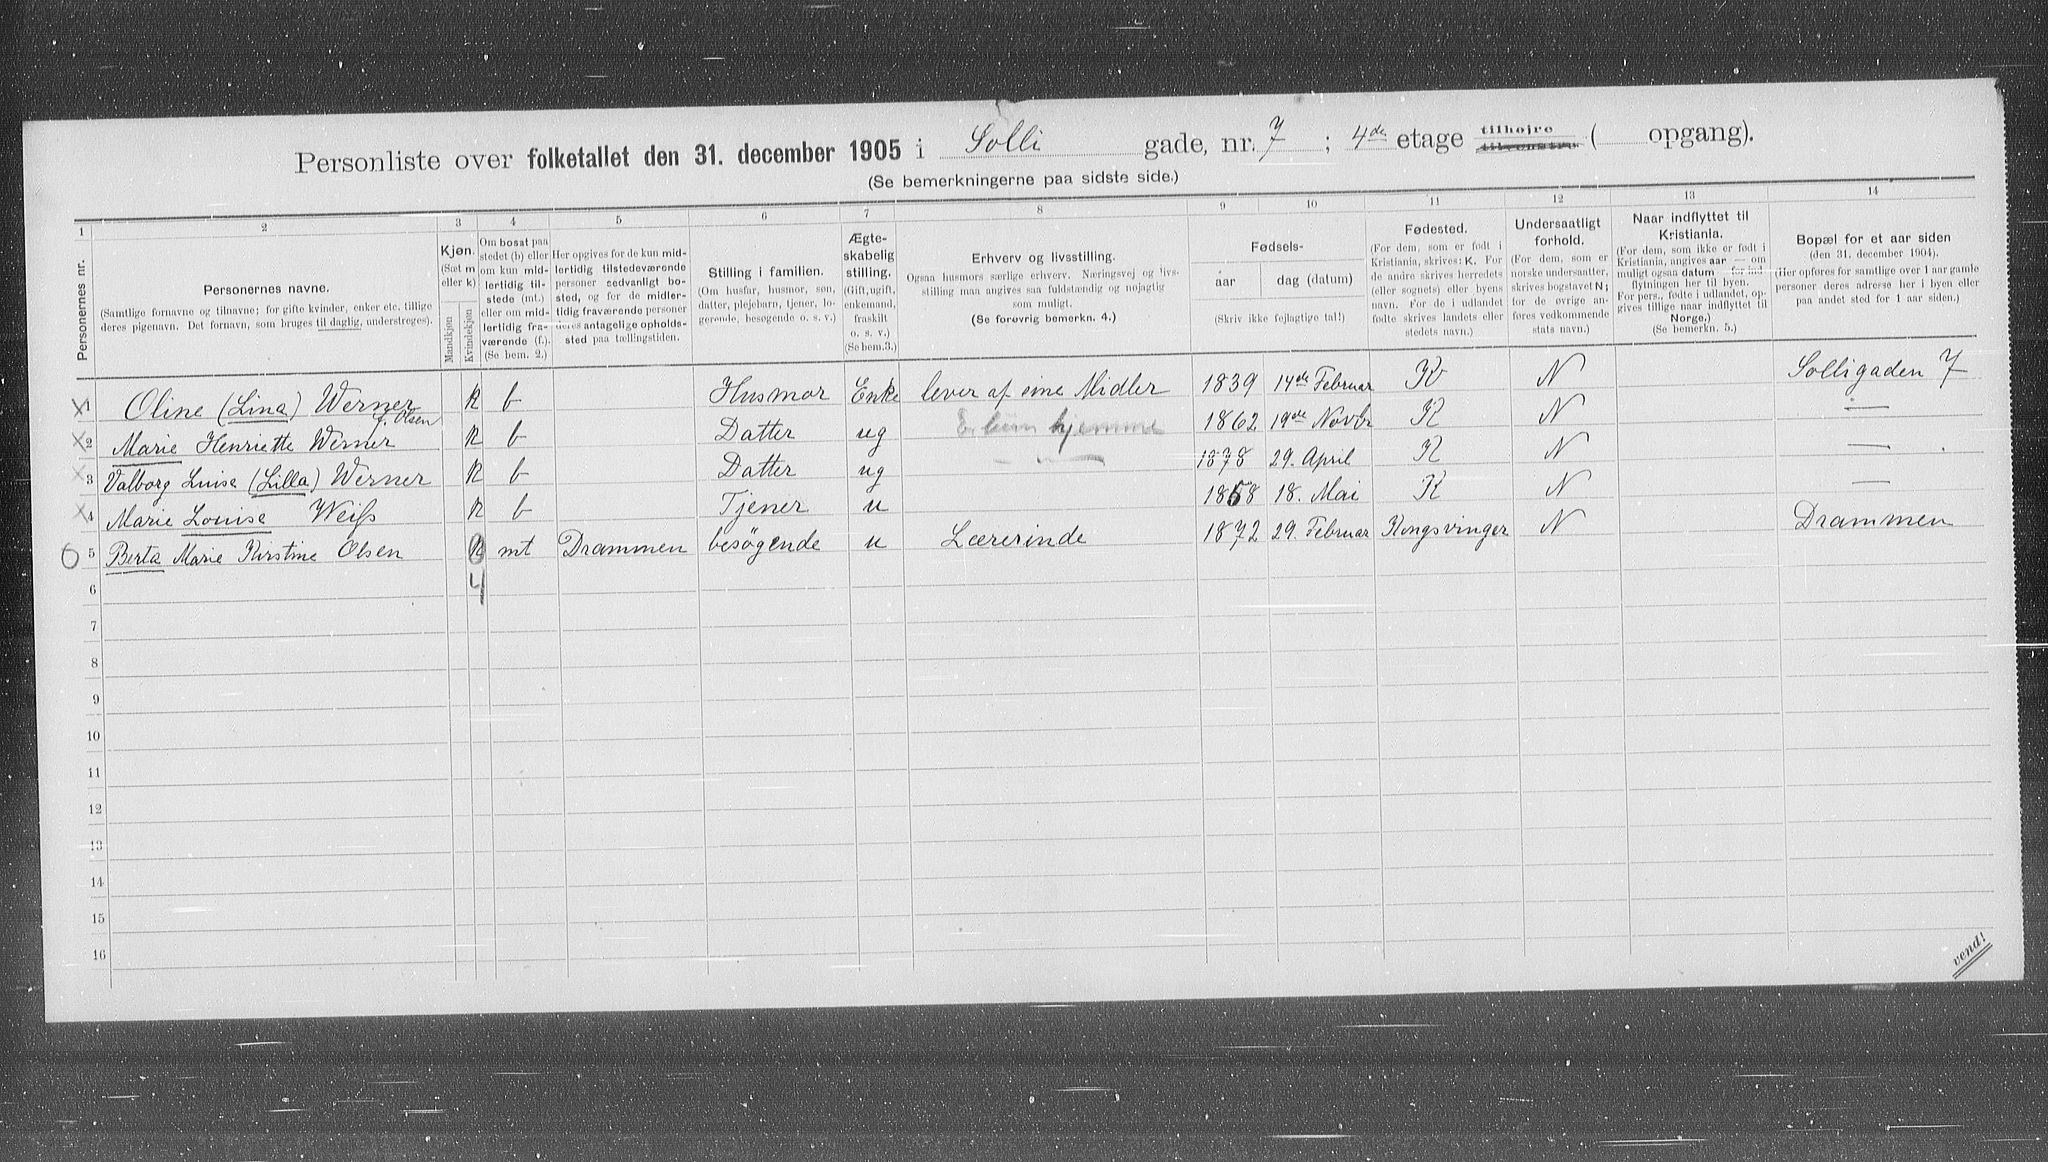 Personliste over folketallet den 31. december 1905 i Solli gade, nr. 7 ; 4de etage tilhøjre tilvenstre ( opgang).
(Se bemerkningerne paa sidste side.)
1 2 3 4 5 6 7 8 9 10 11 12 13 14
Personernes nr.
Personernes navne.
(Samtlige fornavne og tilnavne; for gifte kvinder, enker etc. tillige
deres pigenavn. Det fornavn, som bruges til daglig, understreges).
Kjøn.
(Sæt m
eller k)
Mandkjøn
Kvindekjøn
Om bosat paa
stedet (b) eller
om kun mid-
lertidig til-
stede (mt.)
eller om mid-
lertidig fra-
værende (f.).
(Se bem. 2.)
Her opgives for de kun mid-
lertidig tilstedeværende
personer sedvanligt bo-
sted, og for de midler-
tidig fraværende personer
deres antagelige opholds-
sted paa tællingstiden.
Stilling i familien.
(Om husfar, husmor, søn,
datter, plejebarn, tjener, lo-
gerende, besøgende o. s. v.)
Ægte-
skabelig
stilling.
(Gift, ugift,
enkemand,
fraskilt
o. s. v.)
(Se bem.3.)
Erhverv og livsstilling.
Ogsaa husmors særlige erhverv. Næringsvej og livs-
stilling maa angives saa fuldstændig og nøjagtig
som muligt.
(Se forøvrig bemerkn. 4.)
Fødsels-
aar dag (datum)
(Skriv ikke fejlagtige tal!)
Fødested.
(For dem, som er født i
Kristiania, skrives: K. For
de andre skrives herredets
(eller sognets) eller byens
navn. For de i udlandet
fødte skrives landets eller
stedets navn.)
Undersaatligt
forhold.
(For dem, som er
norske undersaatter,
skrives bogstavet N;
for de øvrige an-
føres vedkommende
stats navn.)
Naar indflyttet til
Kristiania.
(For dem, som ikke er født i
Kristiania, angives aar — om
muligt ogsaa datum — for ind-
flytningen her til byen.
For pers., fødte i udlandet, op-
gives tillige naar indflyttet til
Norge.)
(Se bemerkn. 5.)
Bopæl for et aar siden
(den 31. december 1904).
(Her opføres for samtlige over 1 aar gamle
personer deres adresse her i byen eller
paa andet sted for 1 aar siden.)
X 1 Oline (Lina) Werner f. Olsen k b Husmor Enke lever af sine Midler 1839 14de Februar K N Solligaden 7
X 2 Marie Henriette Werner k b Datter ug hjemme 1862 19de Novbr K N —
X 3 Valborg Luise (Lilla) Werner k b Datter ug — " — 1878 29. April K N —
X 4 Marie Louise Weiss k b Tjener u 1858 18. Mai K N —
0 5 Berta Marie Kirstine Olsen k mt Drammen besøgende u Lærerinde 1872 29. Februar Kongsvinger N Drammen
4
6
7
8
9
10
11
12
13
14
15
16
vend!